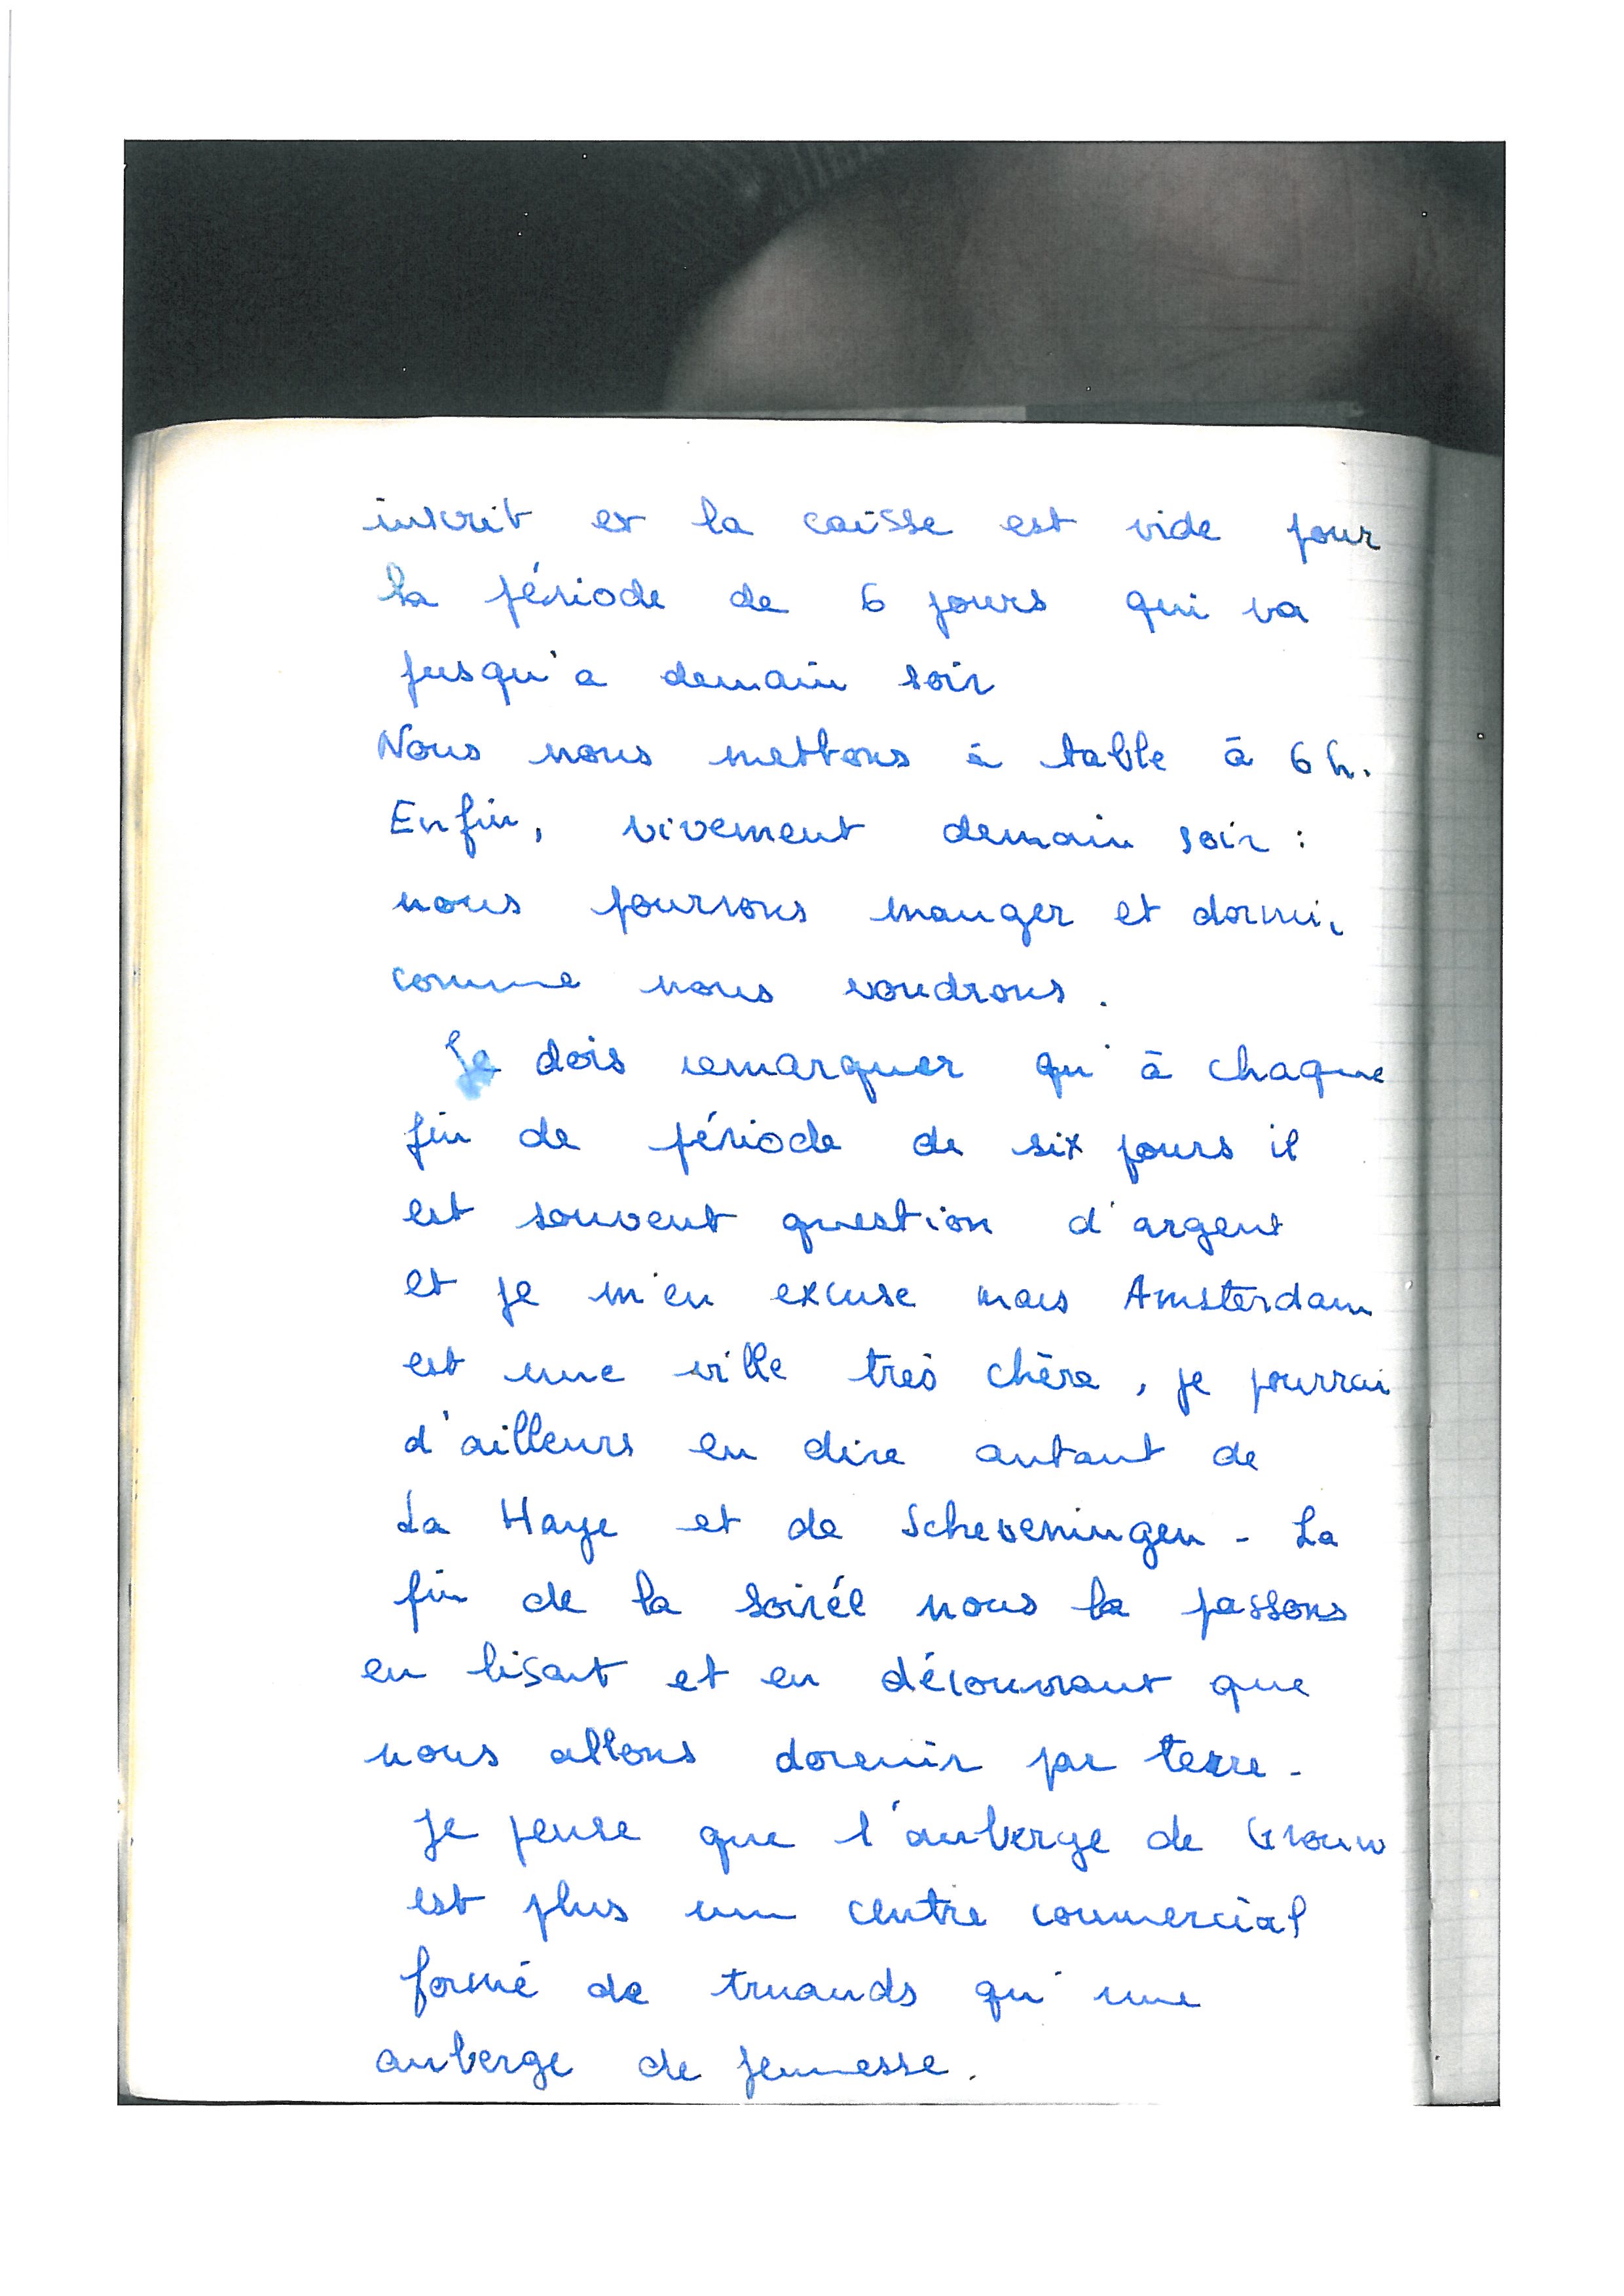 inscrit et la caisse est vide pour
la période de 6 jours qui va
jusqu'a demain soir
Nous nous mettons à table à 6 h.
Enfin, vivement demain soir :
nous pourrons manger et dormir
comme nous voudrons.
Je dois remarquer qu'à chaque
fin de période de six jours il
est souvent question d'argent
et je m'en excuse mais Amsterdam
est une ville très chère, je pourrai
d'ailleurs en dire autant de
La Haye et de Scheveningen - La
fin de la soirée nous la passons
en lisant et en découvrant que
nous allons dormir par terre -
Je pense que l'auberge de Grouw
est plus un centre commercial
formé de truands qu'une
auberge de jeunesse.